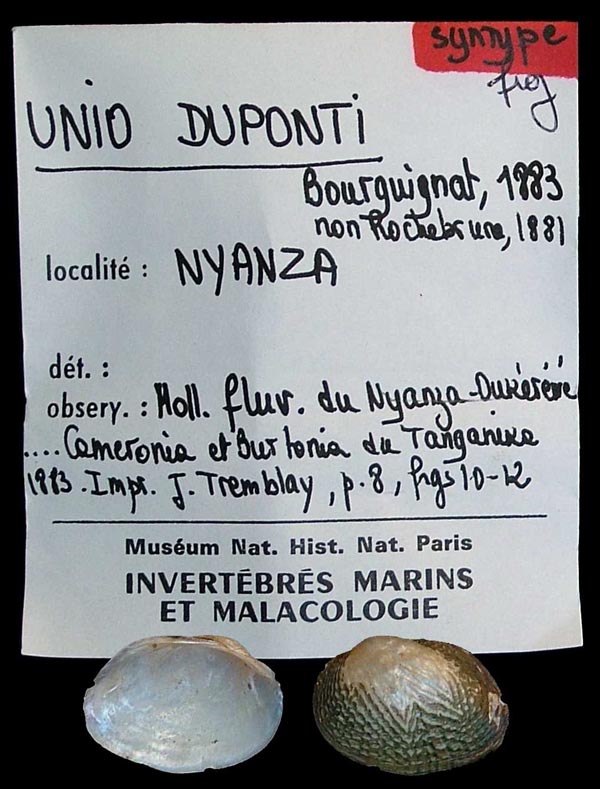 syntype
fig
UNIO DUPONTi
Bourguignat, 1883
non Rochebrune, 1881
localité : NYANZA
dét. :
observ. : Moll. fluv. du Nyanza-Oukéréwé
.... Cameronia et Burtonia du Tanganika
1883. Impr. J. Tremblay, p. 8, figs 10-12
Muséum Nat. Hist. Nat. Paris
INVERTÉBRÉS MARINS
ET MALACOLOGIE